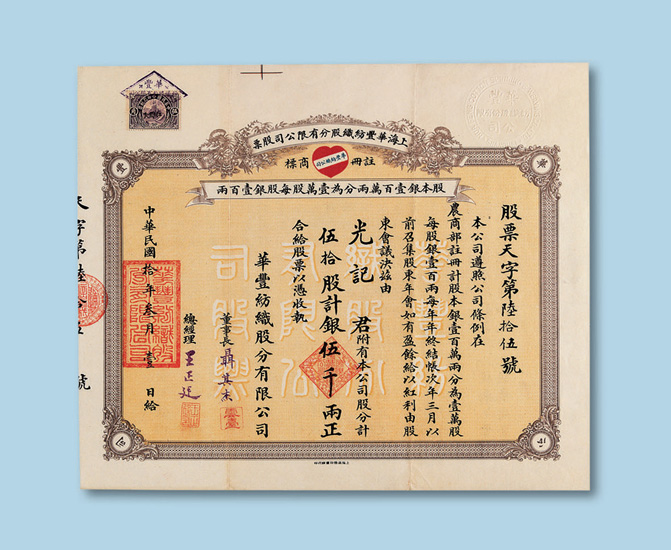 上海華豐紡織股分有限公司股票
註冊
華豐紡織公司
商標
股本銀壹百萬兩分為壹萬股每股銀壹百兩
股票天字第陸拾伍號
本公司遵照公司條例在
農商部註冊計股本銀壹百萬兩分為壹萬股
每股銀壹百兩每年年終結帳次年三月以
前召集股東年會如有盈餘給以紅利由股
東會議決茲由
光記 君附有本公司股分計
伍拾股計銀伍千兩正
合給股票以憑收執
華豐紡織股分有限公司
董事長 聶其杰
總經理 王正廷
中華民國拾年叁月壹日給
天字第陸
號
華豐